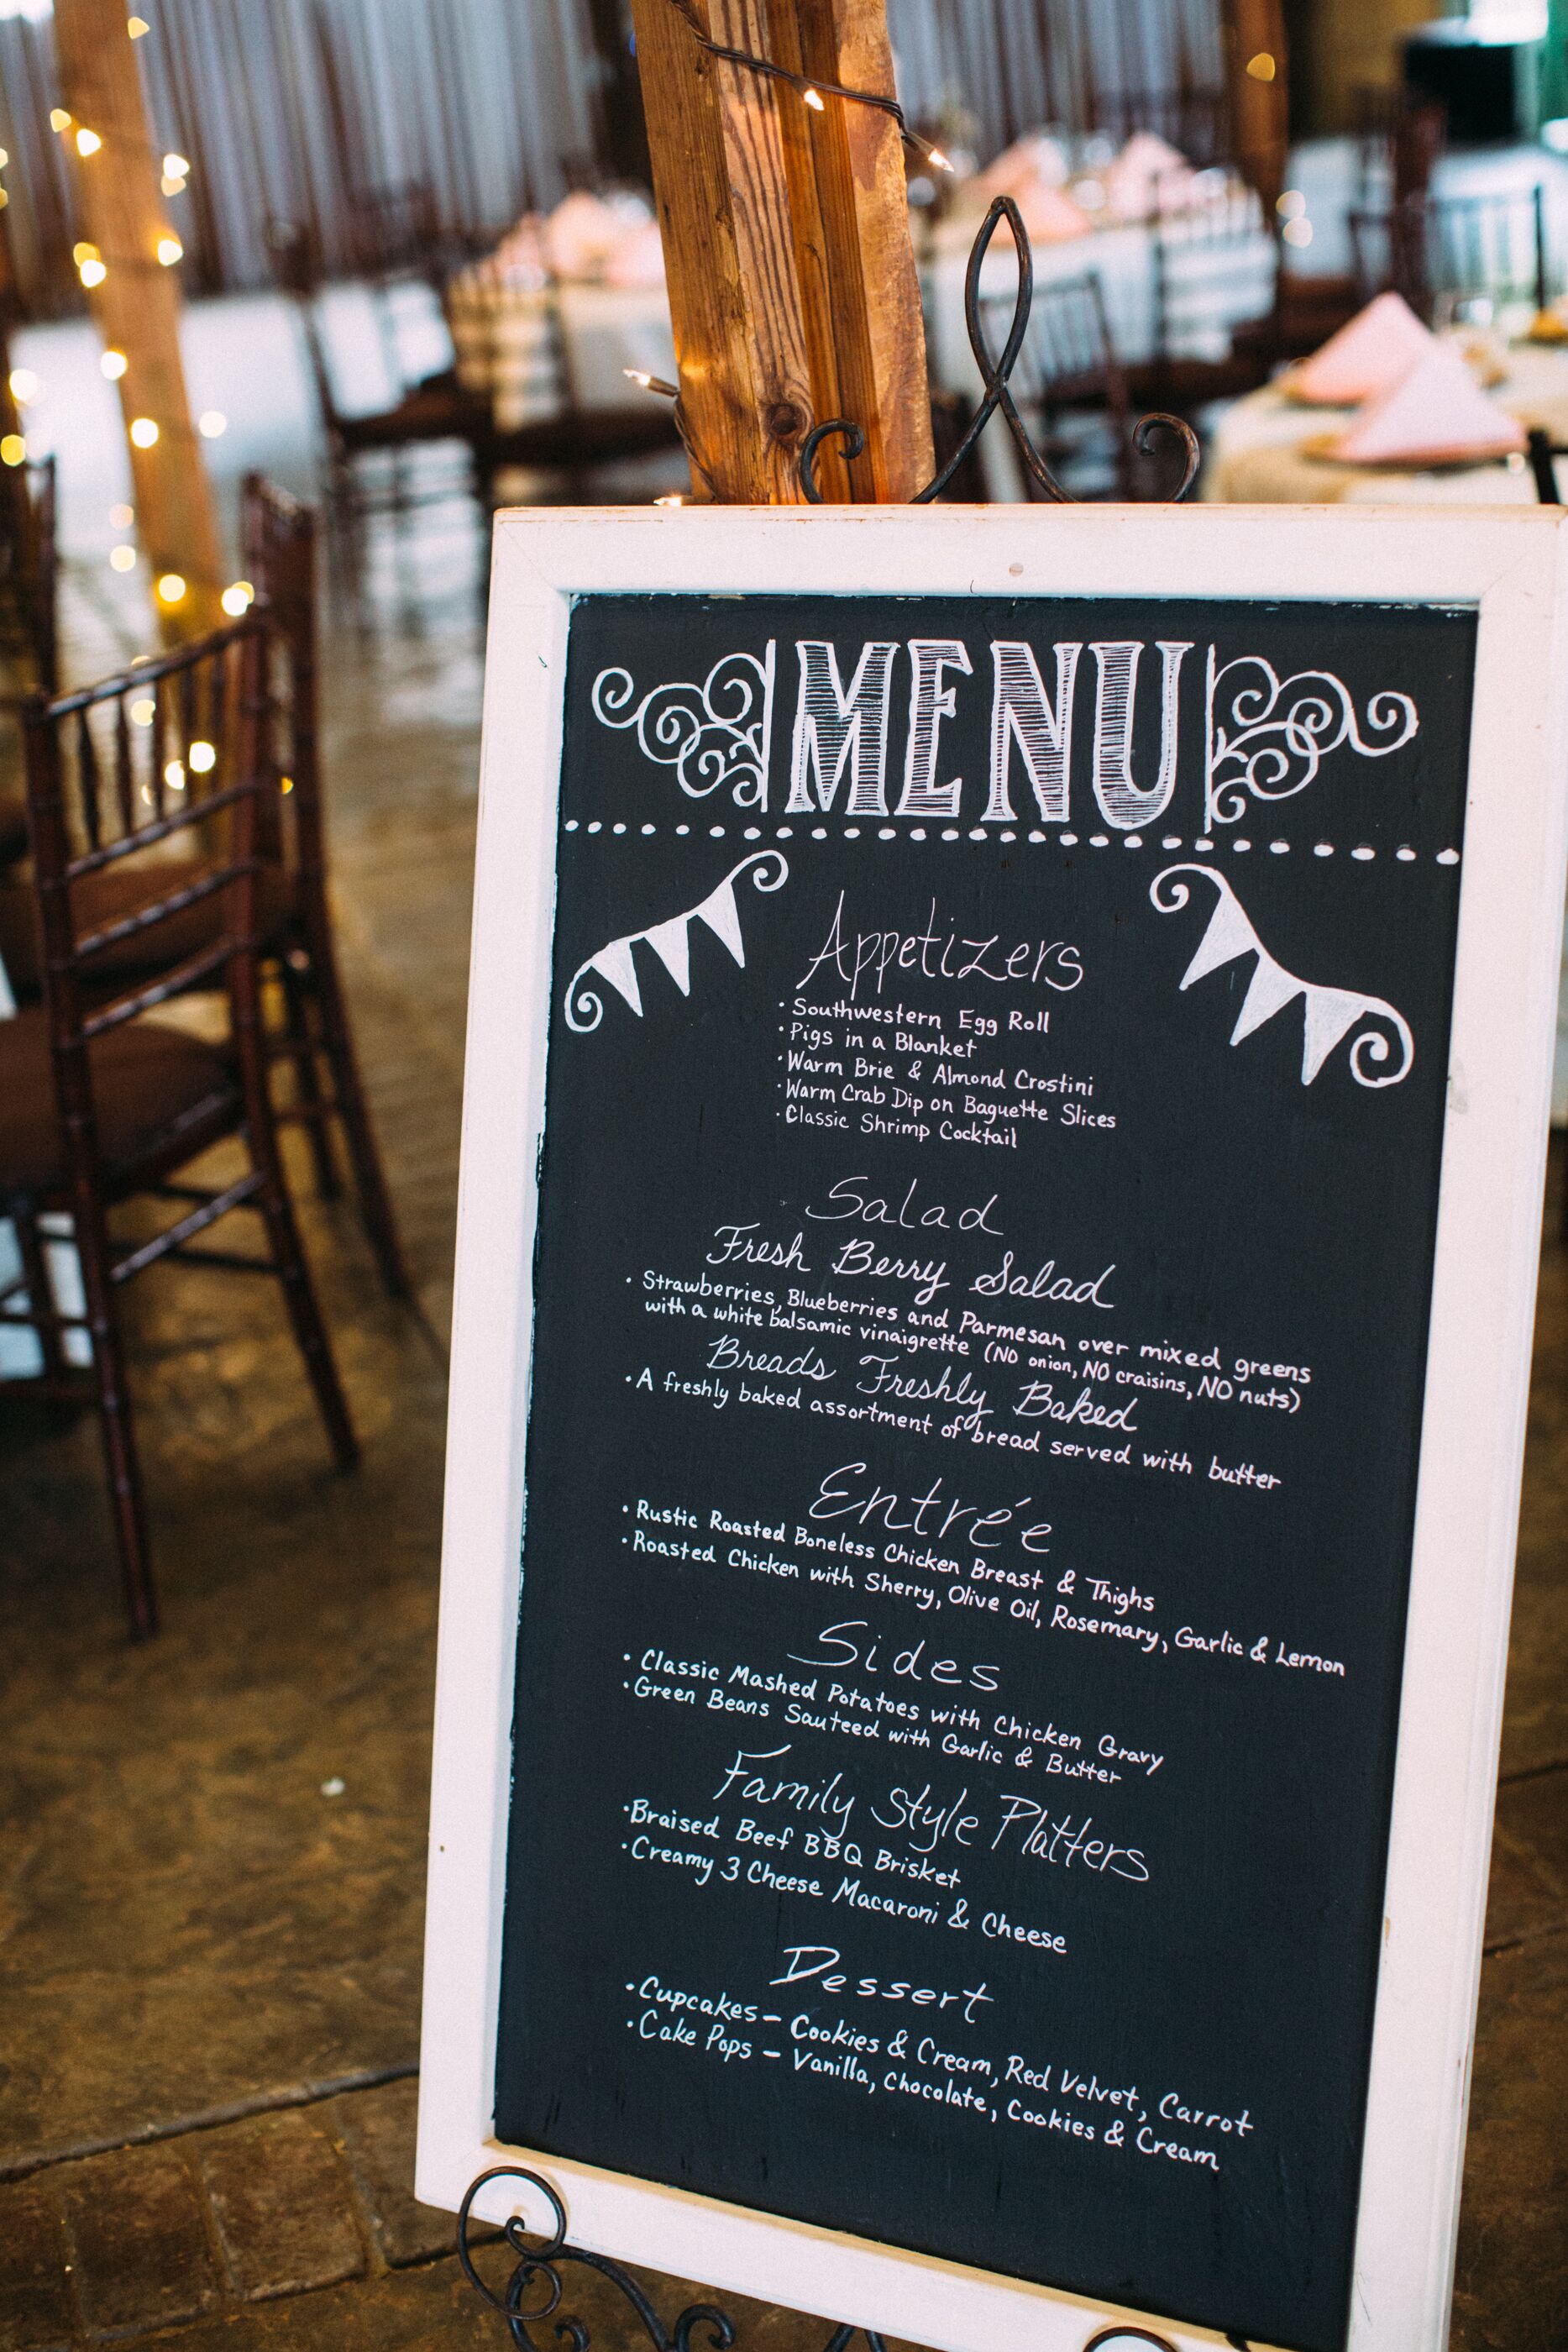 MENU
Appetizers
• Southwestern Egg Roll
• Pigs in a Blanket
• Warm Brie & Almond Crostini
• Warm Crab Dip on Baguette Slices
• Classic Shrimp Cocktail
Salad
Fresh Berry Salad
• Strawberries, Blueberries and Parmesan over mixed greens
with a white balsamic vinaigrette (NO onion, NO craisins, NO nuts)
Breads Freshly Baked
• A freshly baked assortment of bread served with butter
Entrée
• Rustic Roasted Boneless Chicken Breast & Thighs
• Roasted Chicken with Sherry, Olive Oil, Rosemary, Garlic & Lemon
Sides
• Classic Mashed Potatoes with Chicken Gravy
• Green Beans Sauteed with Garlic & Butter
Family Style Platters
• Braised Beef BBQ Brisket
• Creamy 3 Cheese Macaroni & Cheese
Dessert
• Cupcakes – Cookies & Cream, Red Velvet, Carrot
• Cake Pops – Vanilla, Chocolate, Cookies & Cream